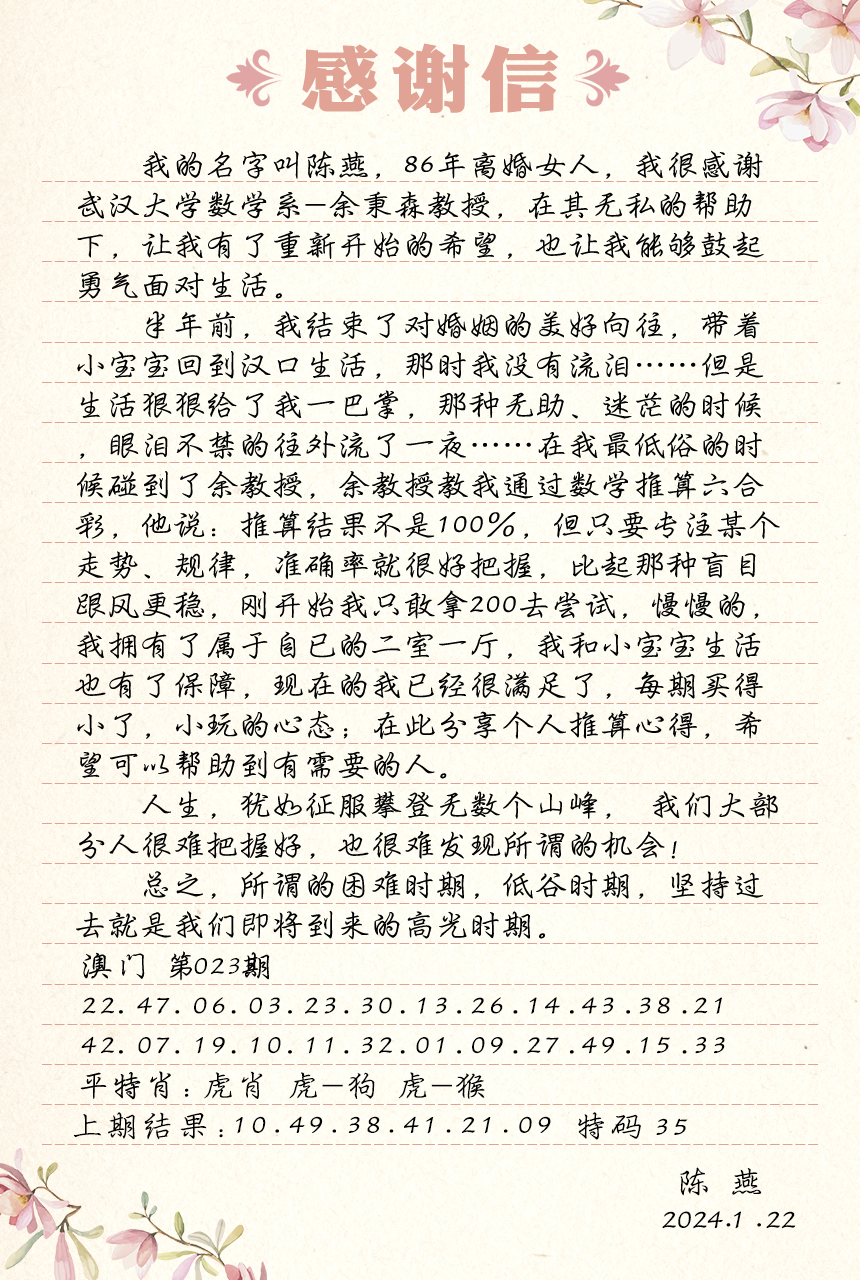 感谢信
我的名字叫陈燕，86年离婚女人，我很感谢
武汉大学数学系—余秉森教授，在其无私的帮助
下，让我有了重新开始的希望，也让我能够鼓起
勇气面对生活。
半年前，我结束了对婚姻的美好向往，带着
小宝宝回到汉口生活，那时我没有流泪……但是
生活狠狠给了我一巴掌，那种无助、迷茫的时候
，眼泪不禁的往外流了一夜……在我最低俗的时
候碰到了余教授，余教授教我通过数学推算六合
彩，他说：推算结果不是100%，但只要专注某个
走势、规律，准确率就很好把握，比起那种盲目
跟风更稳，刚开始我只敢拿200去尝试，慢慢的，
我拥有了属于自已的二室一厅，我和小宝宝生活
也有了保障，现在的我已经很满足了，每期买得
小了，小玩的心态；在此分享个人推算心得，希
望可以帮助到有需要的人。
人生，犹如征服攀登无数个山峰， 我们大部
分人很难把握好，也很难发现所谓的机会！
总之，所谓的困难时期，低谷时期，坚持过
去就是我们即将到来的高光时期。
澳门 第023期
22.47.06.03.23.30.13.26.14.43.38.21
42.07.19.10.11.32.01.09.27.49.15.33
平特肖：虎肖 虎—狗 虎—猴
上期结果：10.49.38.41.21.09 特码 35
陈 燕
2024.1.22